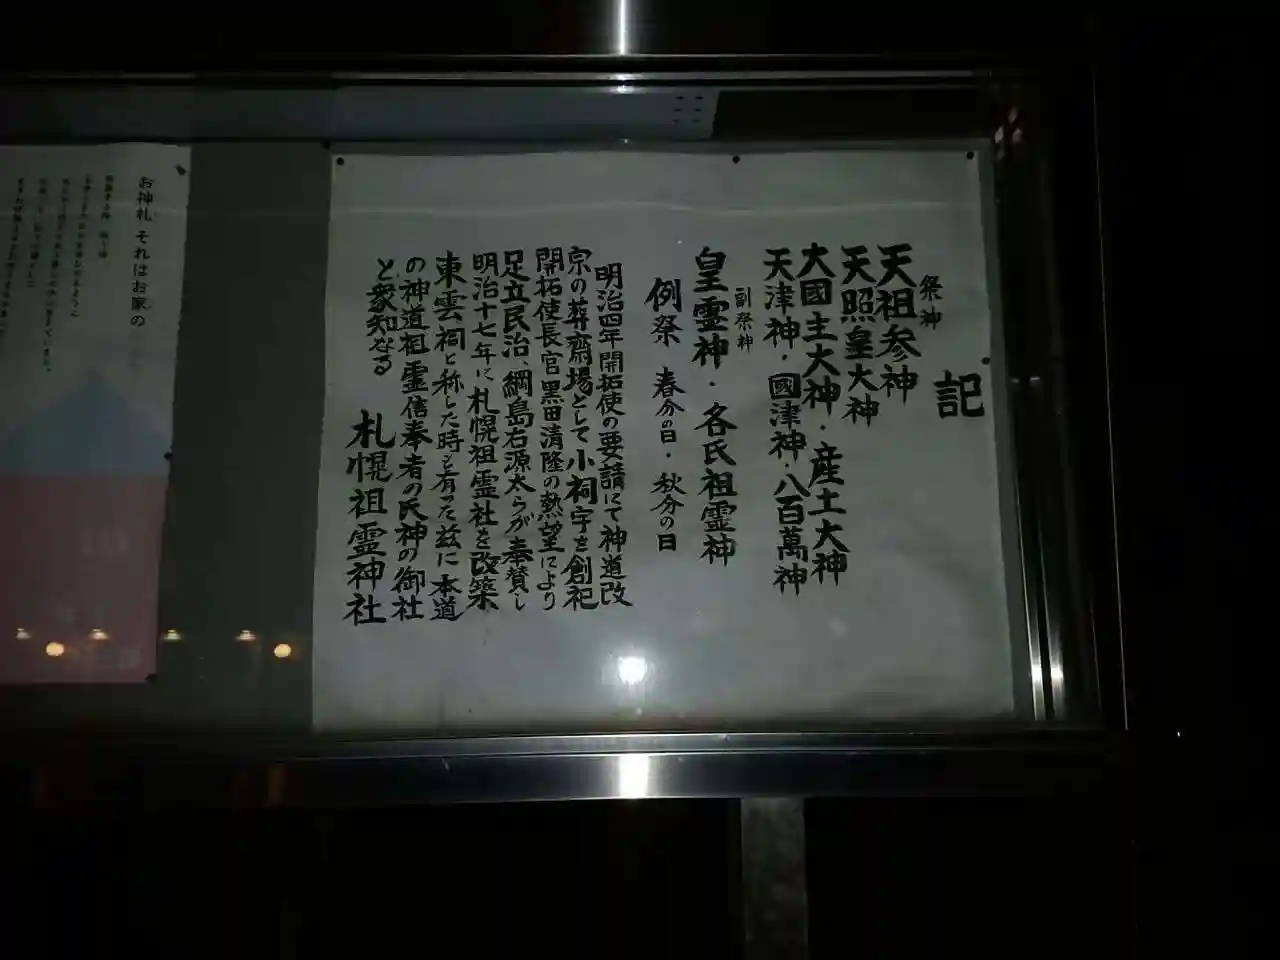 記
祭神
天祖参神
天照皇大神
大國主大神・産土大神
天津神・國津神・八百萬神
副祭神
皇霊神・各氏祖霊神
例祭 春分の日・秋分の日
明治四年開拓使の要請にて神道改
宗の葬齋場として小祠宇を創祀
開拓使長官黒田清隆の熱望により
足立民治、綱島右源太らが奉賛し
明治十七年に札幌祖霊社を改築
東雲祠と称した時も有った茲に本道
の神道祖霊信奉者の氏神の御社
と衆知なる
札幌祖霊神社
お神札 それはお家の